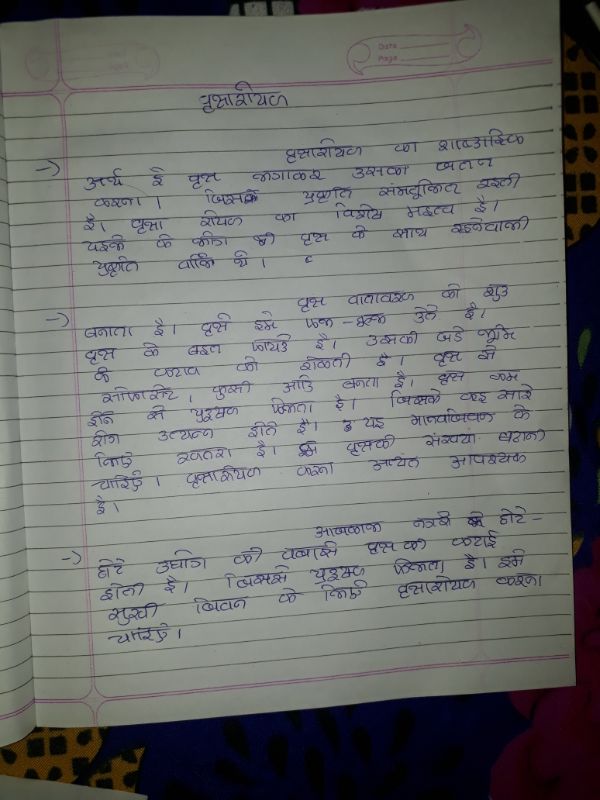 Date
Page
वृक्षारोपण
वृक्षारोपण का शाब्दाब्दिक
अर्थ है वृक्ष लगाकर उसका जतन
करना। जिसके प्रकृति संमतूलित रहती
है। वृक्षा रोपण का विशेष महत्व है।
पहले के लोग भी वृक्ष के साथ रहनेवाली
प्रकृति थे।
वृक्ष वातावरण को शुद्ध
बनाता है। वृक्ष हमे फल-फूल देते है।
वृक्ष के बहुत फायदे है। उसकी जडे भूमि
के कटाव को रोकती है। वृक्ष से
सोफासेट, कुर्सी आदि बनता है। वृक्ष कम
होने से प्रदूषण फैलता है। जिसके कइ सारे
रोग उत्पन्न होते है। यह मानवजिवन के
लिए खतरा है। वृक्षकी संख्या बढानी
चाहिए। वृक्षारोपण करना अत्यंत आवश्यक
है।
आजकाल छोटे-
छोटे उद्योग की वजहसे वृक्ष की कटाई
होती है। जिससे प्रदूषण फैलता है। हमे
सुखी जिवन के लिए वृक्षारोपण करना
चाहिए।